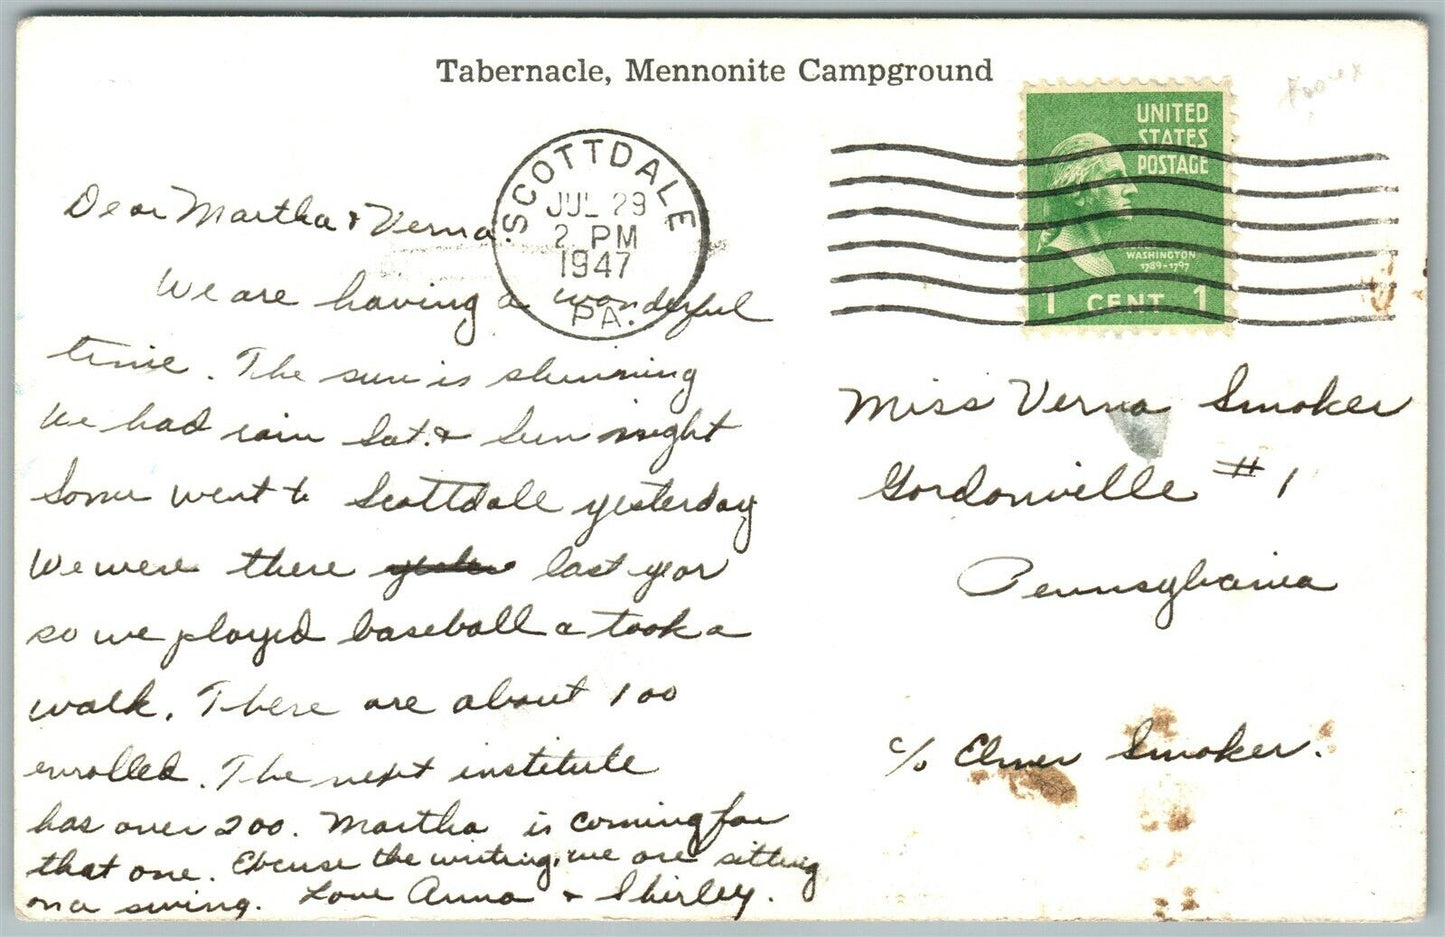 Tabernacle, Mennonite Campground
SCOTTDALE
JUL 29
2 PM
1947
PA.
UNITED
STATES
POSTAGE
WASHINGTON
1789-1797
1 CENT 1
Dear Martha & Verna.
We are having a wonderful
time. The sun is shinning
We had rain Sat. & Sun night
Some went to Scottdale yesterday
We were there last year
so we played baseball & took a
walk. There are about 100
enrolled. The next institute
has over 200. Martha is coming for
that one. Excuse the writing, we are sitting
on a swing. Love Anna & Shirley.
Miss Verna Smoker
Gordonville #1
Pennsylvania
c/o Elmer Smoker.